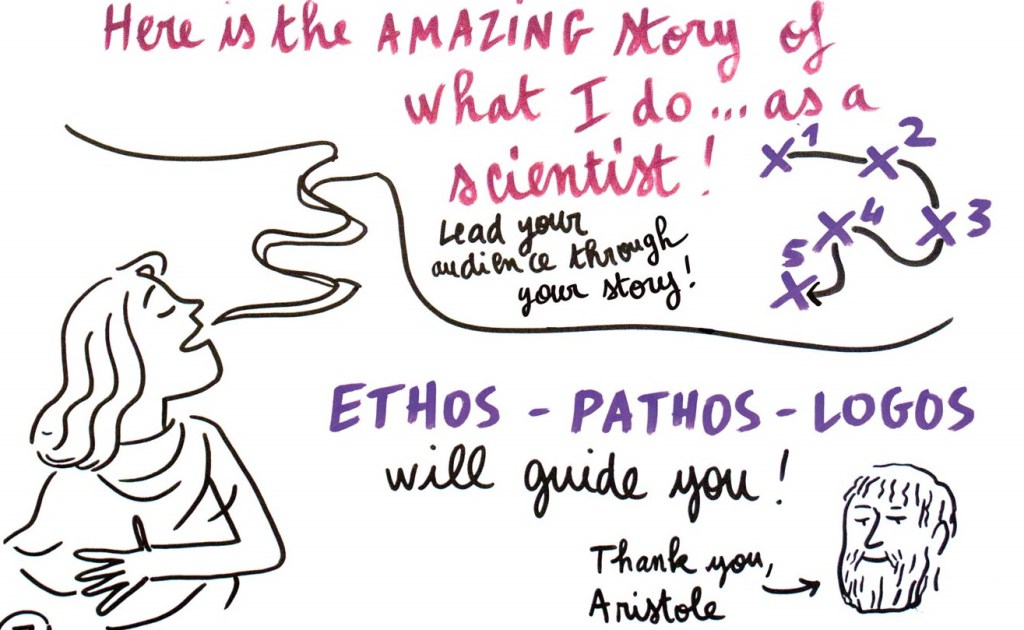 Here is the AMAZING story of
what I do... as a
scientist!
1
2
3
4
5
Lead your
audience through
your story!
ETHOS - PATHOS - LOGOS
will guide you!
Thank you,
Aristole